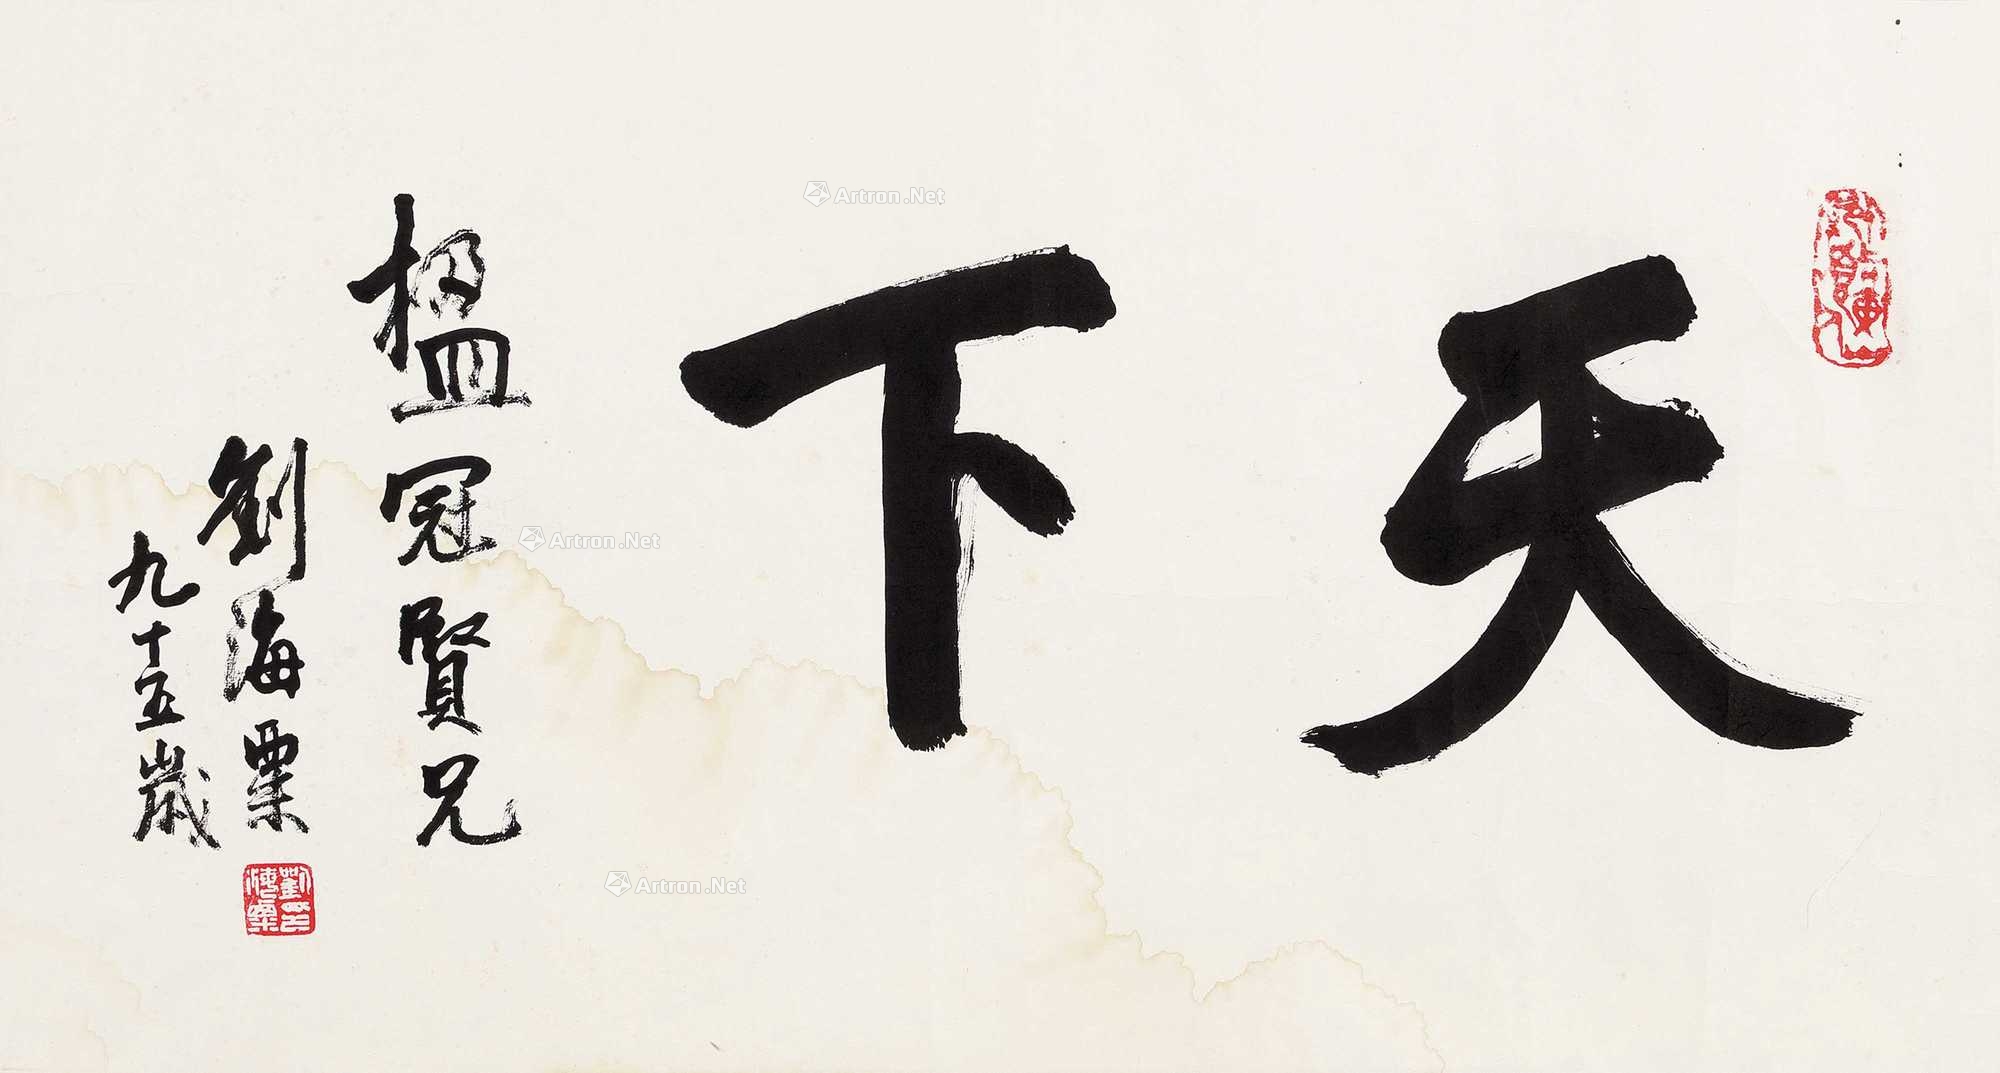 天下
楹冠賢兄
劉海粟
九十五歲
劉海粟印
Artron.Net
Artron.Net
Artron.Net